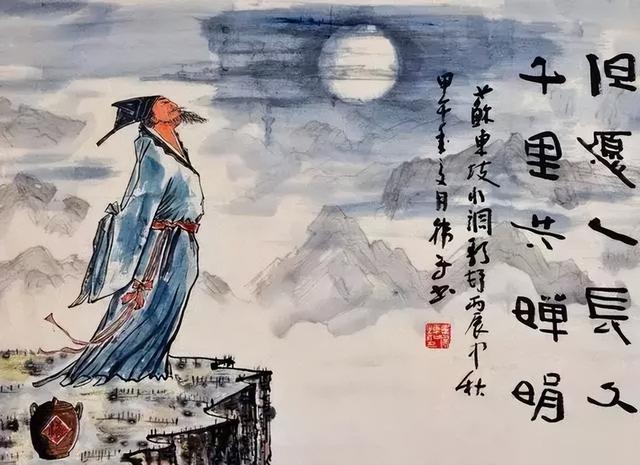 但愿人長久
千里共嬋娟
蘇東坡水調歌頭丙辰中秋
甲午
月
酒